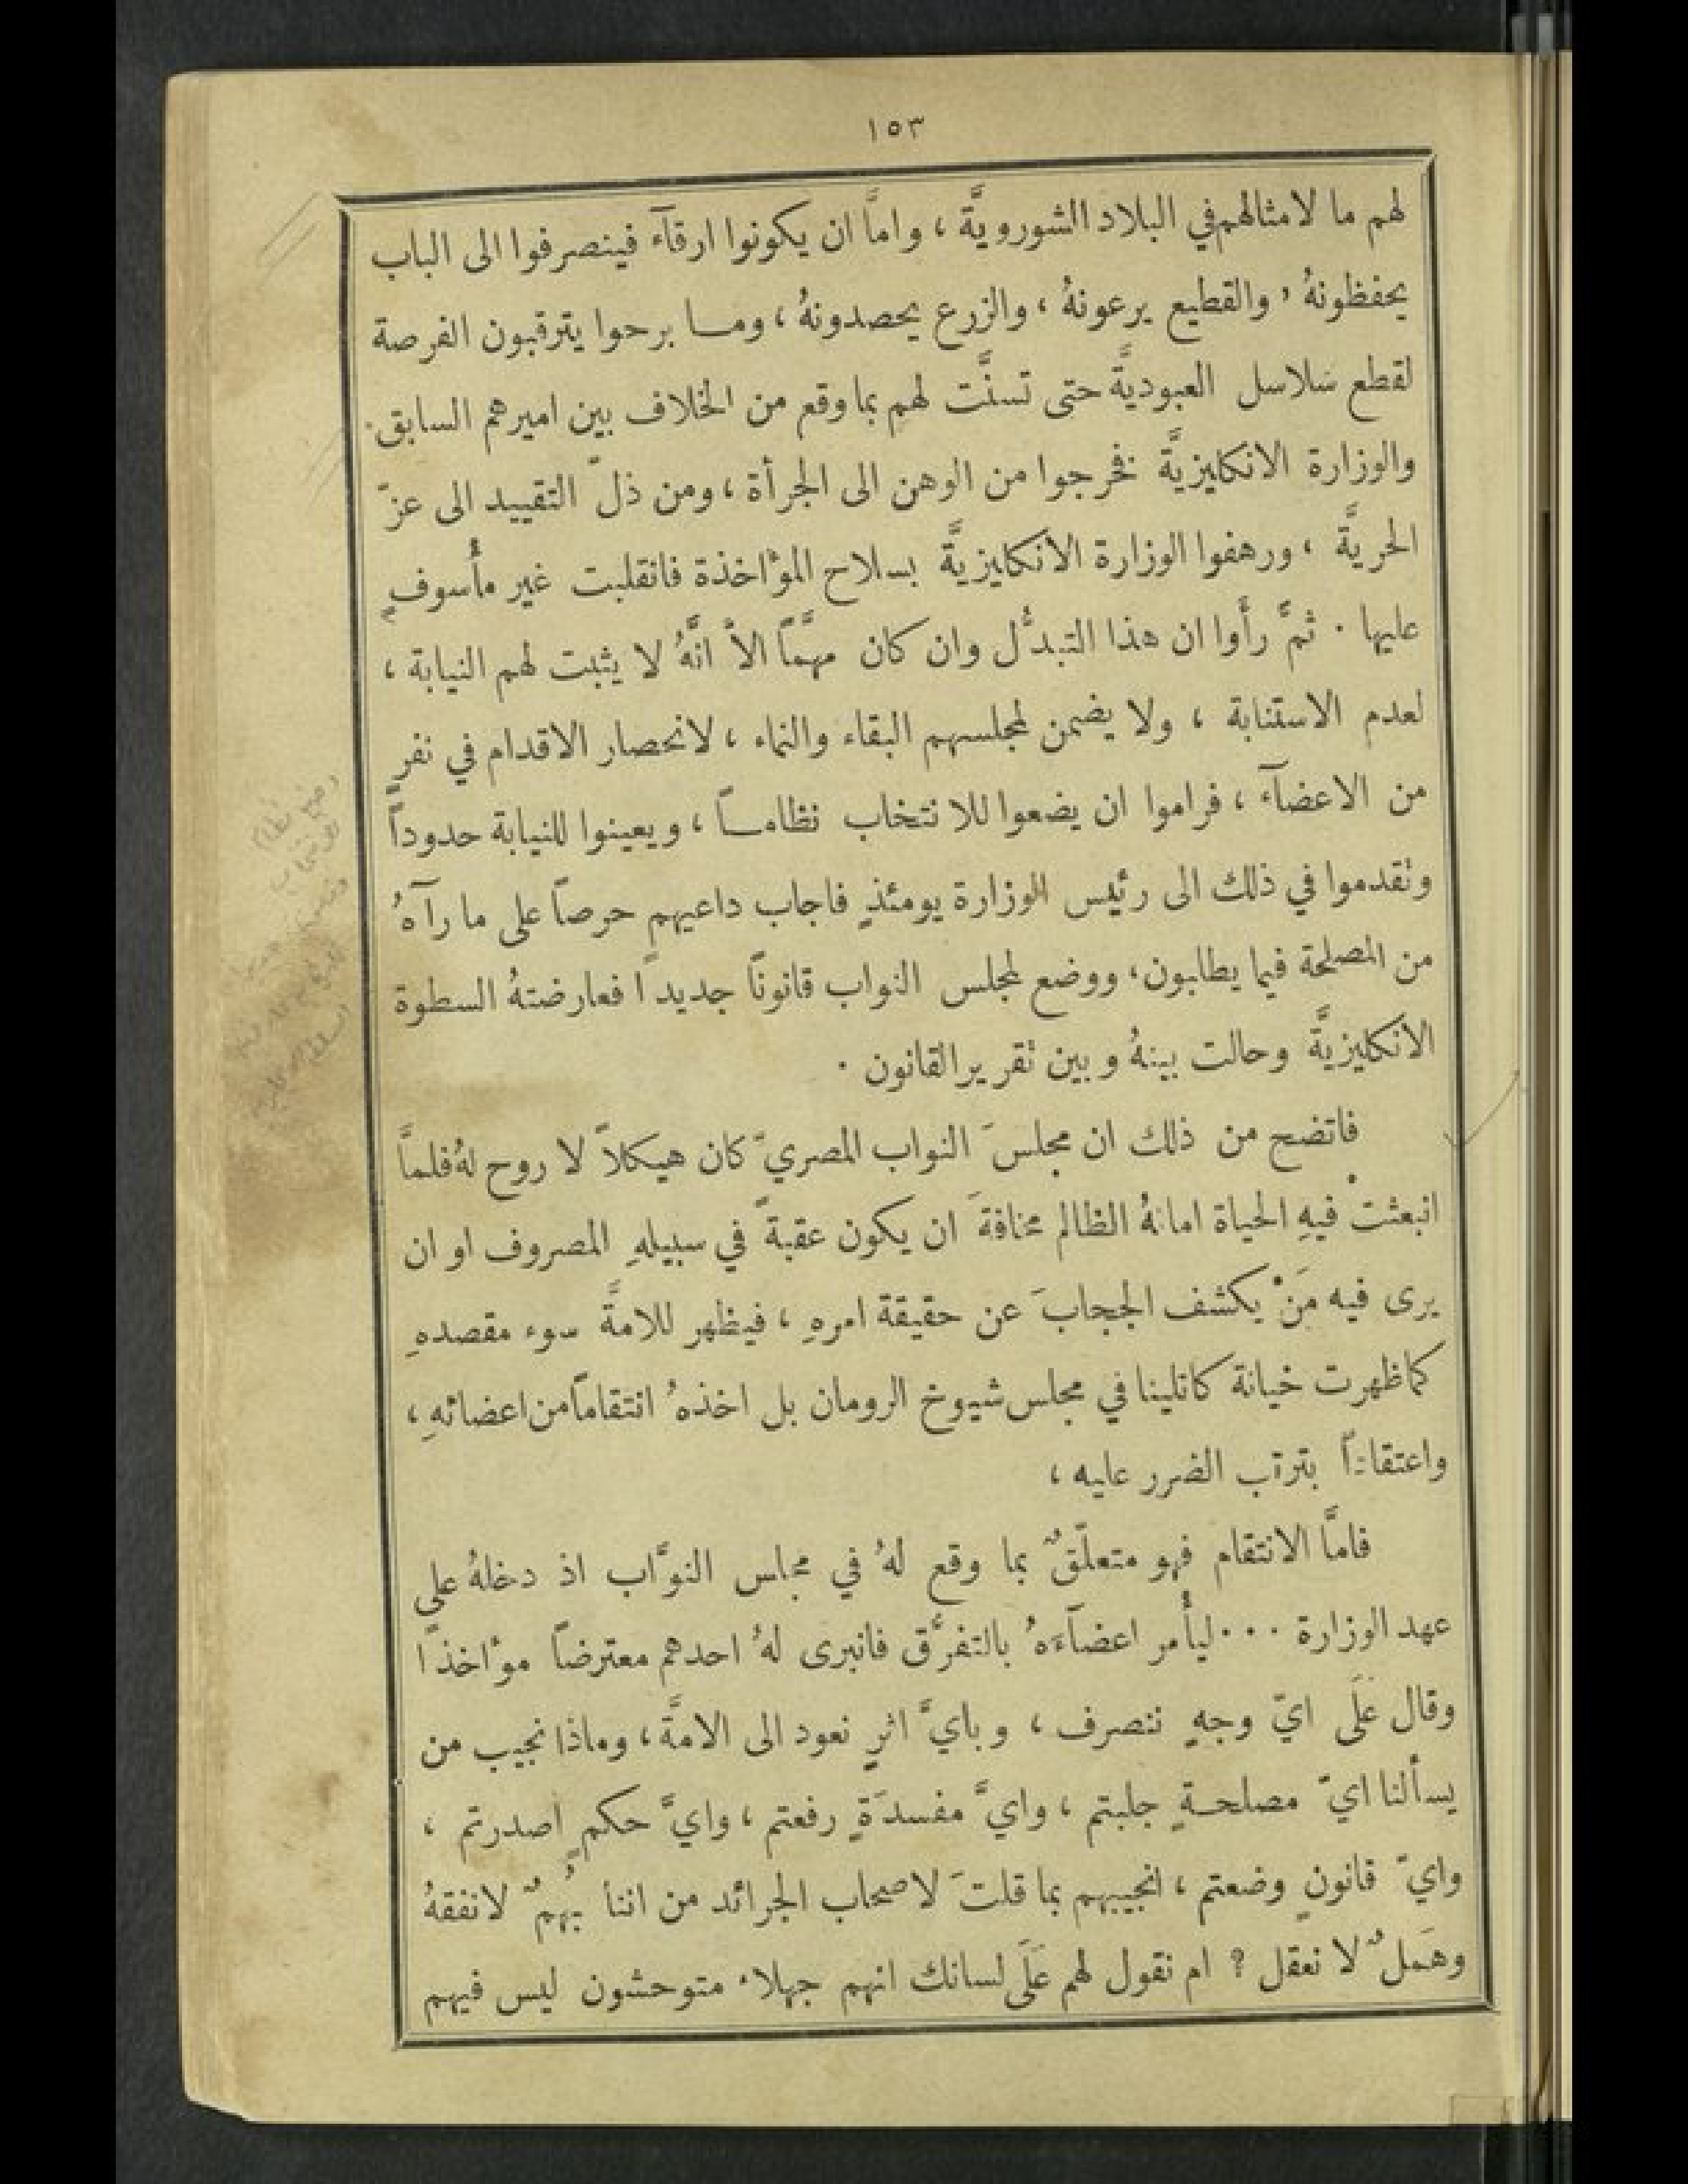 ١٥٣
لهم ما لامثالهم في البلاد الشورويَّة ، وامَّا ان يكونوا ارقآء فينصرفوا الى الباب
يحفظونهُ ، والقطيع يرعونهُ ، والزرع يحصدونهُ ، وما برحوا يترقبون الفرصة
لقطع سلاسل العبوديَّة حتى تسنَّت لهم بما وقع من الخلاف بين اميرهم السابق
والوزارة الانكليزيَّة فخرجوا من الوهن الى الجرأة ، ومن ذلّ التقييد الى عزّ
الحريَّة ، ورهفوا الوزارة الانكليزيَّة بسلاح المؤاخذة فانقلبت غير مأسوفٍ
عليها . ثمَّ رأَوا ان هذا التبدُّل وان كان مهمًّا الاَّ انَّهُ لا يثبت لهم النيابة ،
لعدم الاستنابة ، ولا يضمن لمجلسهم البقاء والنماء ، لانحصار الاقدام في نفرٍ
من الاعضآء ، فراموا ان يضعوا للانتخاب نظاماً ، ويعينوا للنيابة حدوداً
وتقدموا في ذلك الى رئيس الوزارة يومئذٍ فاجاب داعيهم حرصاً على ما رآهُ
من المصلحة فيما يطلبون، ووضع لمجلس النواب قانوناً جديداً فعارضتهُ السطوة
الانكليزيَّة وحالت بينهُ وبين تقرير القانون .
فاتضح من ذلك ان مجلسَ النواب المصريّ كان هيكلاً لا روح لهُ فلمَّا
انبعثتْ فيهِ الحياة اماتهُ الظالم مخافةَ ان يكون عقبةً في سبيلهِ المصروف او ان
يرى فيه مَنْ يكشف الحجابَ عن حقيقة امرهِ ، فيظهر للامَّة سوء مقصدهِ
كما ظهرت خيانة كاتلينا في مجلس شيوخ الرومان بل اخذهُ انتقاماً من اعضائهِ ،
واعتقاداً بترتب الضرر عليه ،
فامَّا الانتقام فهو متعلّقٌ بما وقع لهُ في مجلس النوَّاب اذ دخلهُ على
عهد الوزارة ... ليأمر اعضآءَهُ بالتفرُّق فانبرى لهُ احدهم معترضاً مؤاخذاً
وقال عَلَى ايّ وجهٍ ننصرف ، وبايّ اثرٍ نعود الى الامَّة ، وماذا نجيب من
يسألنا ايّ مصلحةٍ جلبتم ، وايَّ مفسدَةٍ رفعتم ، وايَّ حكمٍ اصدرتم ،
وايّ قانونٍ وضعتم ، انجيبهم بما قلتَ لاصحاب الجرائد من اننا بُهمٌ لا نفقهُ
وهَملٌ لا نعقل ؟ ام نقول لهم عَلَى لسانك انهم جهلاء متوحشون ليس فيهم